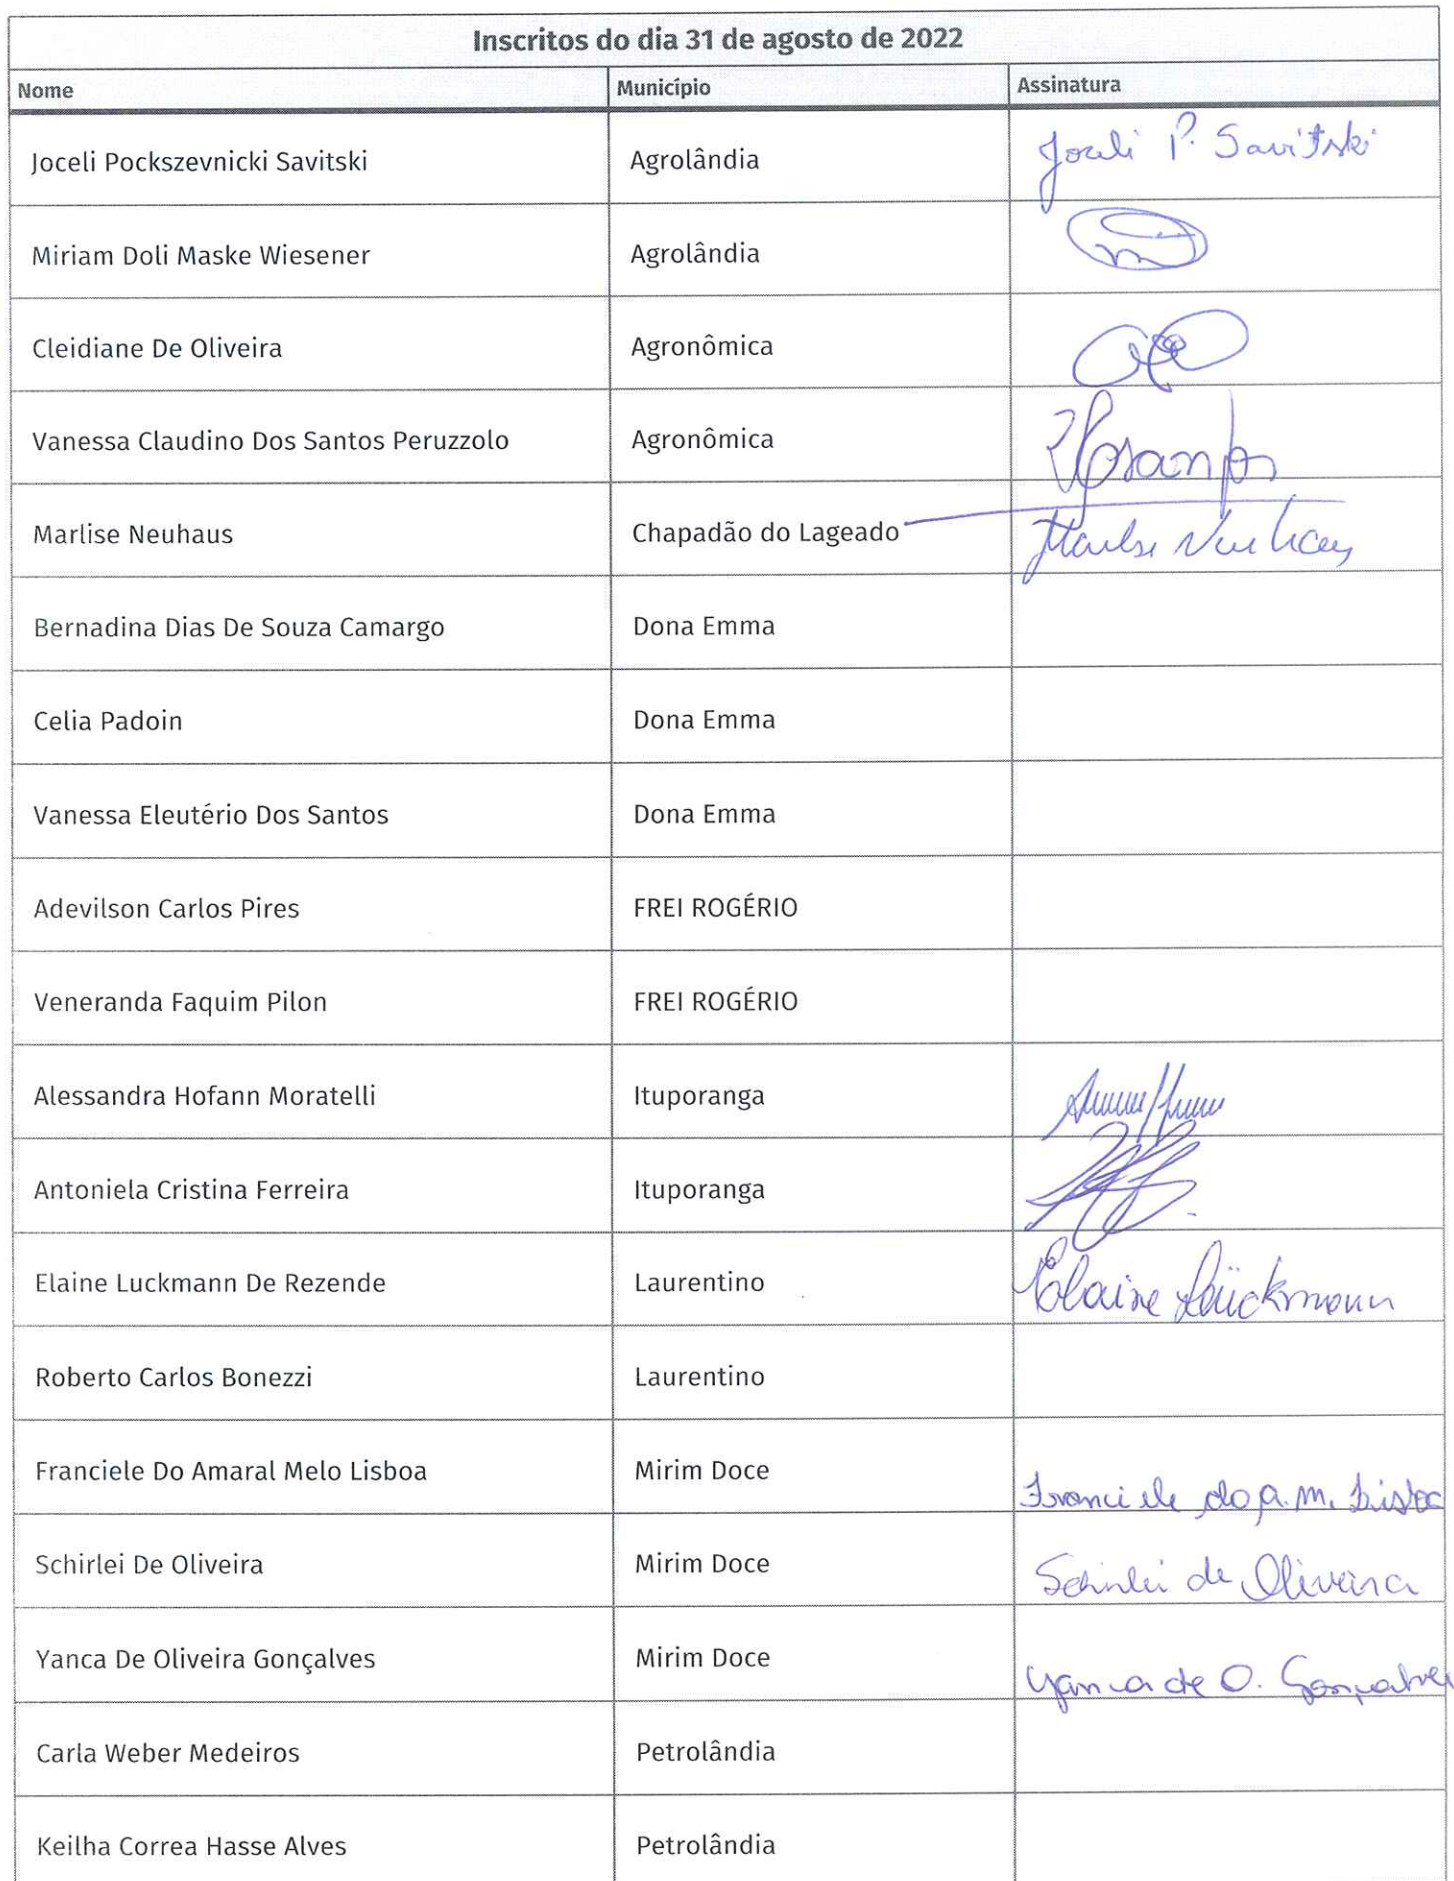 Inscritos do dia 31 de agosto de 2022
Nome Município Assinatura
Joceli Pockszevnicki Savitski Agrolândia Joceli P. Savitski
Miriam Doli Maske Wiesener Agrolândia
Cleidiane De Oliveira Agronômica
Vanessa Claudino Dos Santos Peruzzolo Agronômica
Marlise Neuhaus Chapadão do Lageado Marlise Neuhaus
Bernadina Dias De Souza Camargo Dona Emma
Celia Padoin Dona Emma
Vanessa Eleutério Dos Santos Dona Emma
Adevilson Carlos Pires FREI ROGÉRIO
Veneranda Faquim Pilon FREI ROGÉRIO
Alessandra Hofann Moratelli Ituporanga
Antoniela Cristina Ferreira Ituporanga
Elaine Luckmann De Rezende Laurentino Elaine Lückmann
Roberto Carlos Bonezzi Laurentino
Franciele Do Amaral Melo Lisboa Mirim Doce Franciele do A. M. Lisboa
Schirlei De Oliveira Mirim Doce Schirlei de Oliveira
Yanca De Oliveira Gonçalves Mirim Doce Yanca de O. Gonçalves
Carla Weber Medeiros Petrolândia
Keilha Correa Hasse Alves Petrolândia